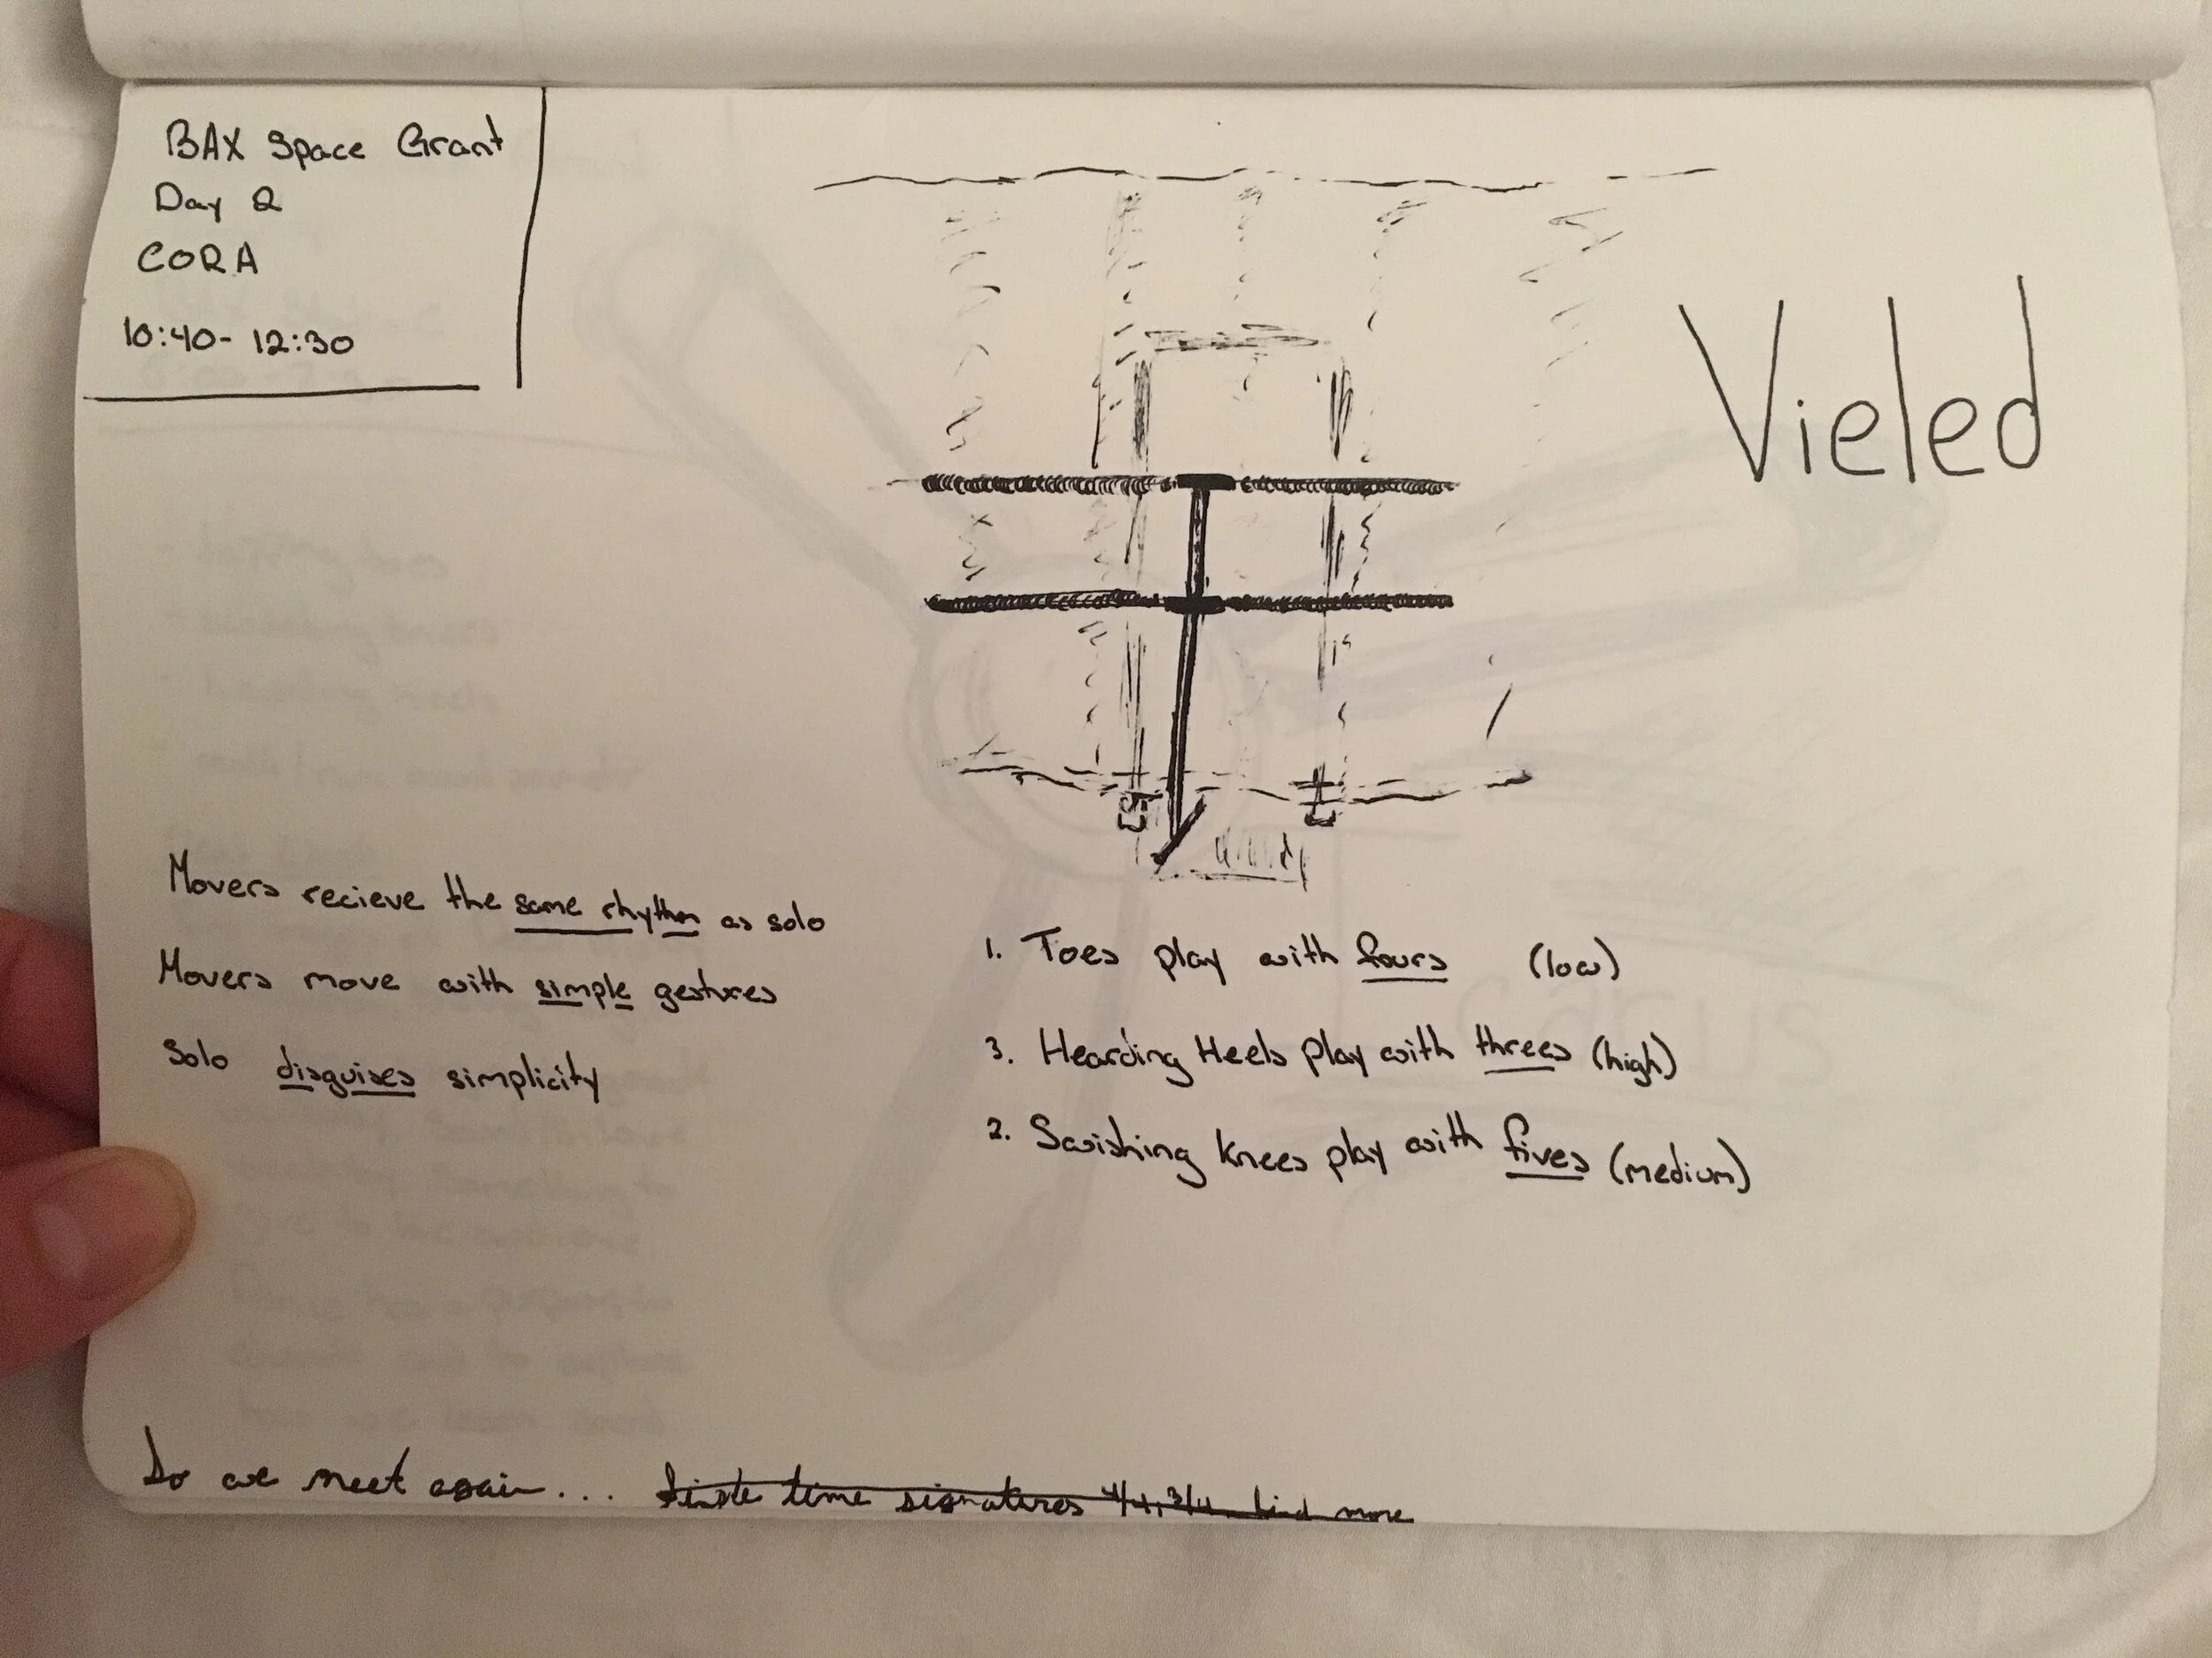 BAX Space Grant
Day 2
CORA
10:40- 12:30
Vieled
Movers recieve the same rhythm as solo
Movers move with simple gestures
Solo disguises simplicity
1. Toes play with fours (low)
3. Hearding Heels play with threes (high)
2. Swishing knees play with fives (medium)
So we meet again... time signatures 4/4, 3/4 find more